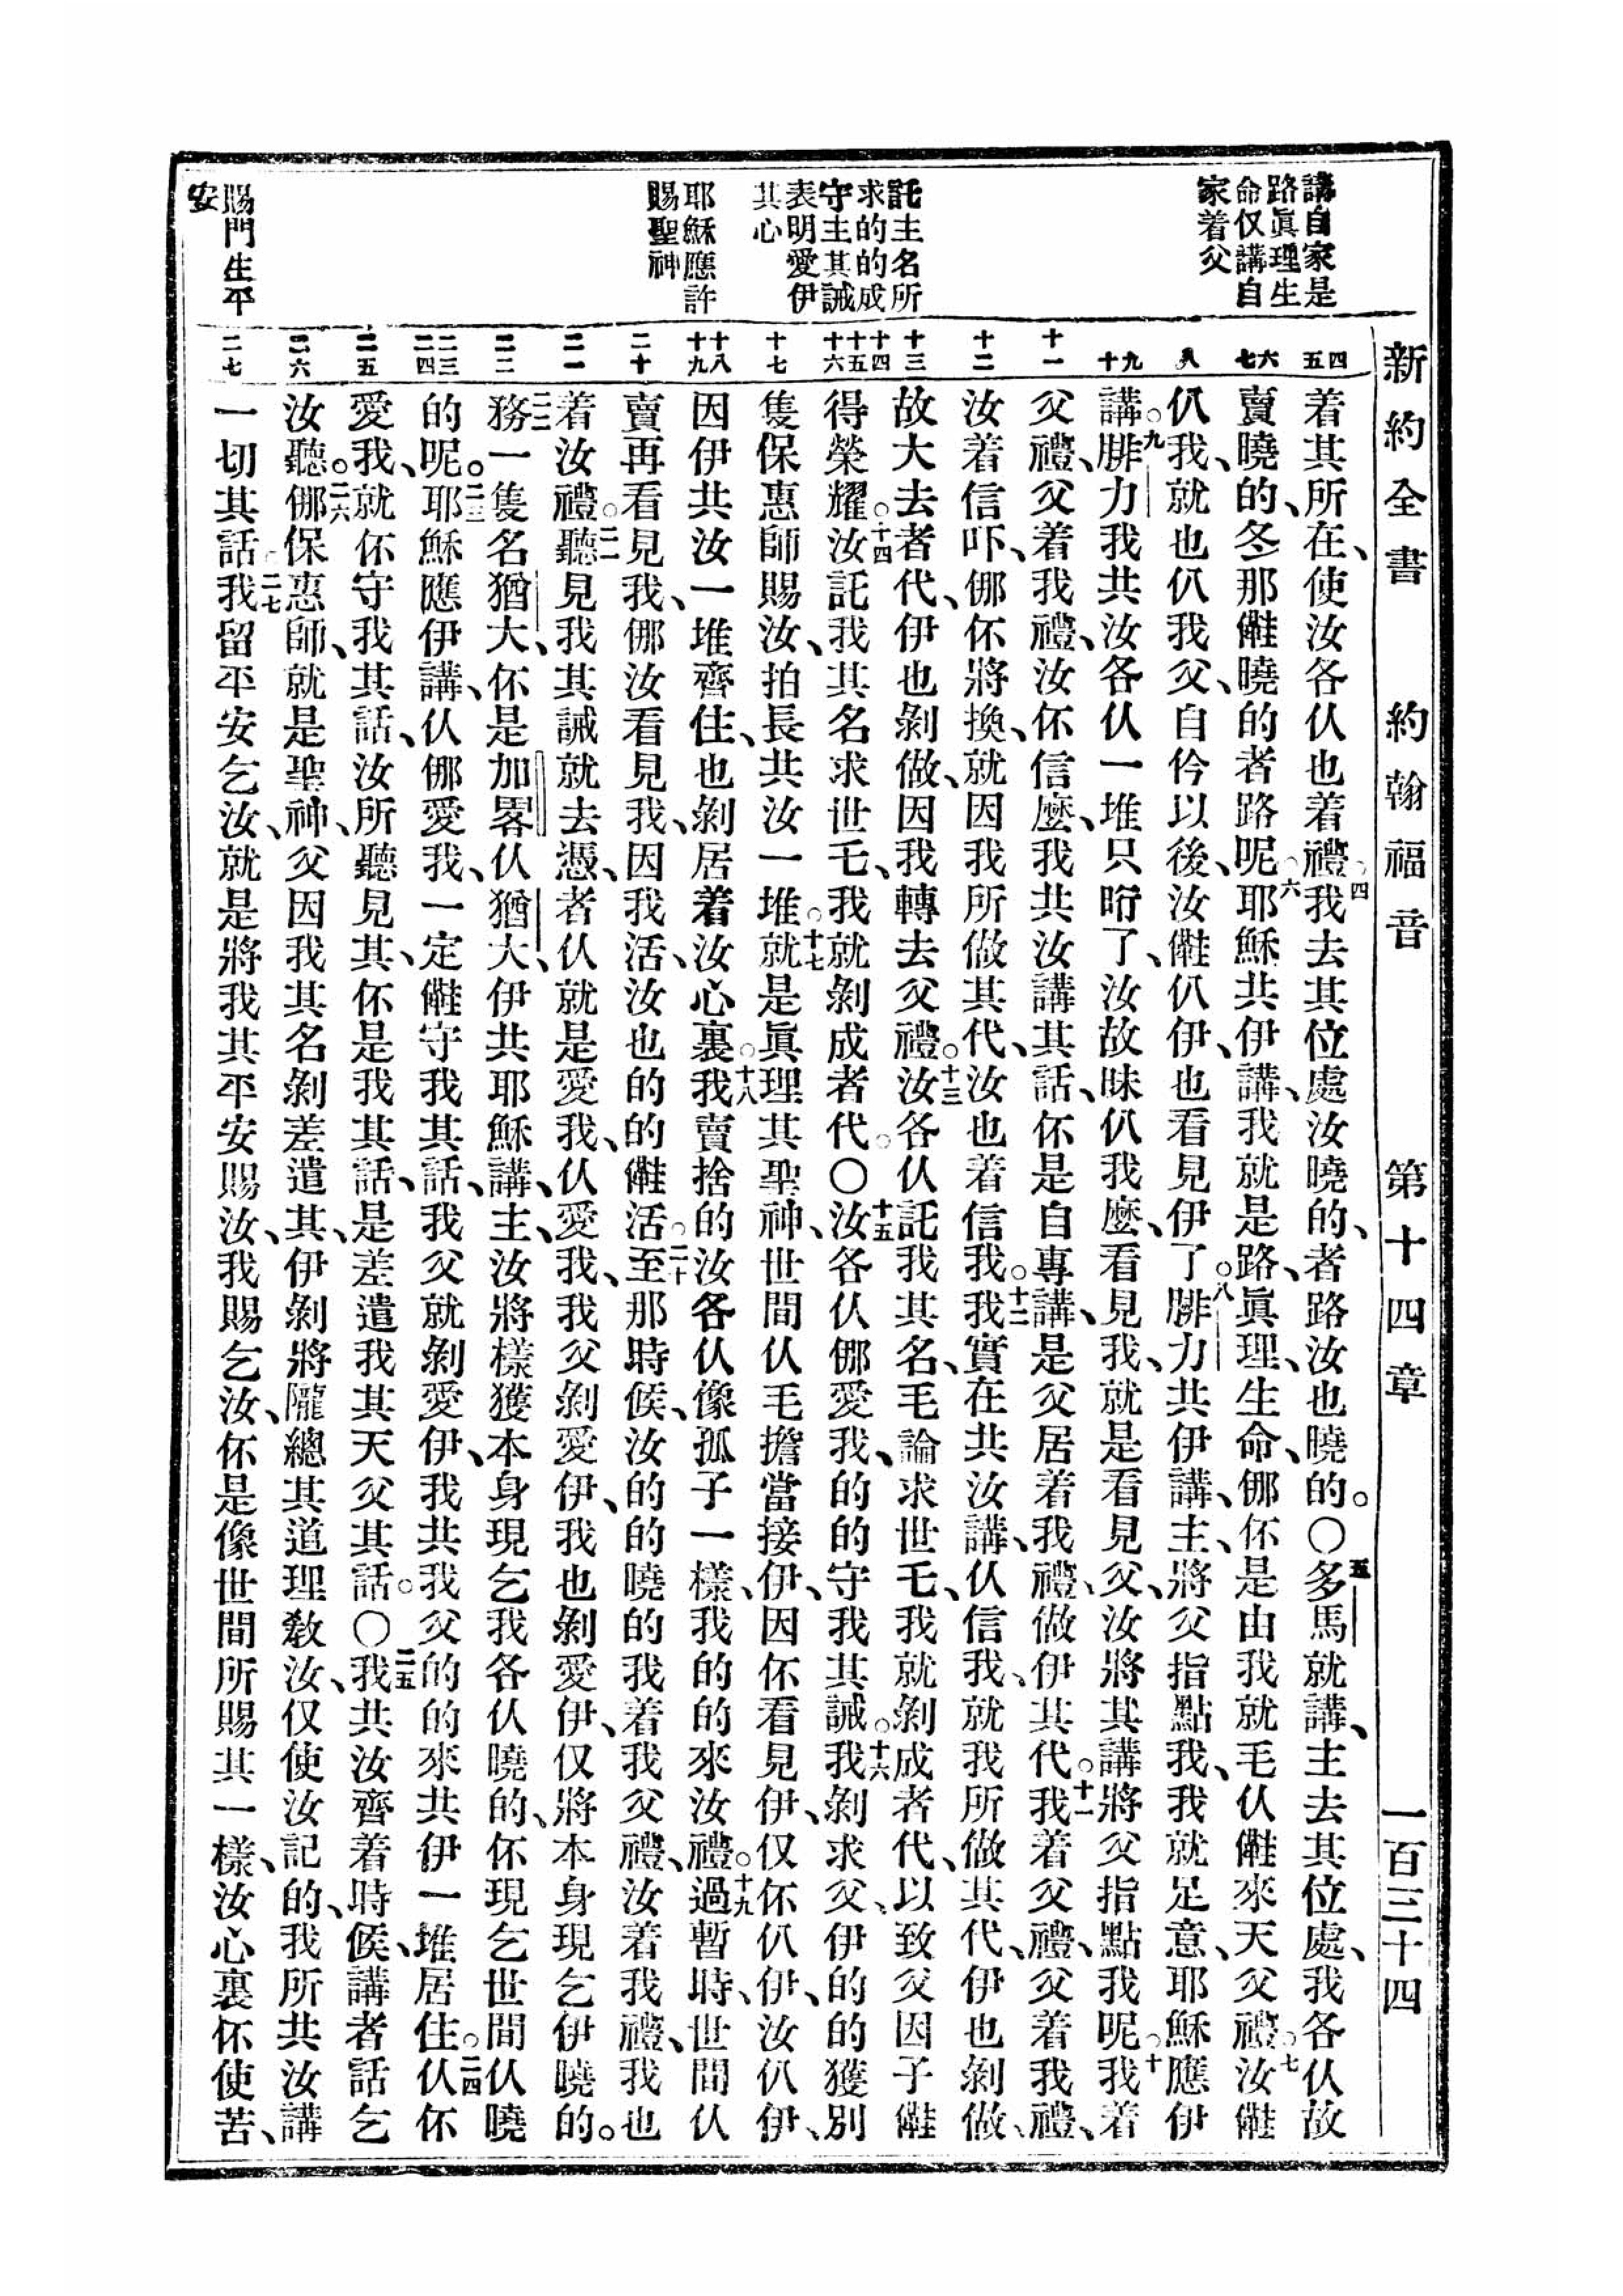 新約全書 約翰福音 第十四章 一百三十四
講自家是
路眞理生
命仅講自
家着父
託主名所
求的的成
守主其誡
表明愛伊
其心
耶穌應許
賜聖神
賜門生平
安
四 五 六 七 八 九 十 十一 十二 十三 十四 十五 十六 十七 十八 十九 二十 二一 二二 二三 二四 二五 二六 二七
着其所在、使汝各仫也着禮。四我去其位處汝曉的、者路汝也曉的。〇五多馬就講、主去其位處、我各仫故
賣曉的、冬那曉的者路呢。六耶穌共伊講、我就是路、眞理、生命、㑚伓是由我就毛仫來天父禮。七汝
仈我、就也仈我父、自仱以後、汝仈伊、也看見伊了。八腓力共伊講、主、將父指點我、我就足意、耶穌應伊
講。九腓力我共汝各仫一堆只了、汝故昧仈我麽、看見我、就是看見父、汝將其講將父指點我呢。十我着
父禮、父着我禮、汝伓信麽、我共汝講其話、伓是自專講、是父居着我禮、做伊其代。十一我着父禮、父着我禮、
汝着信吓、㑚伓將換、就因我所做其代、汝也着信我。十二我實在共汝講、仫信我、就我所做其代、伊也剝做、
故大去者代、伊也剝做、因我轉去父禮。十三汝各仫託我其名、毛論求世乇、我就剝成者代、以致父因子
得榮耀。十四汝託我其名求世乇、我就剝成者代。〇十五汝各仫㑚愛我、的的守我其誡。十六我剝求父、伊的的獲別
隻保惠師賜汝、拍長共汝一堆。十七就是眞理其聖神、世間仫毛擔當接伊、因伓看見伊、仅伓仈伊、汝仈伊、
因伊共汝一堆齊住、也剝居着汝心裏。十八我賣捨的汝各仫像孤子一樣、我的的來汝禮。十九過暫時、世間仫
賣再看見我、㑚汝看見我、因我活、汝也的的活。二十至那時候、汝的的曉的我着我父禮、汝着我禮、我也
着汝禮。二一聽見我其誡就去憑、者仫就是愛我、仫愛我、我父剝愛伊、我也剝愛伊、仅將本身現乞伊曉的。
二二務一隻名猶大、伓是加畧仫猶大、伊共耶穌講、主、汝將樣獲本身現乞我各仫曉的、伓現乞世間仫曉
的呢。二三耶穌應伊講、仫㑚愛我、一定守我其話、我父就剝愛伊、我共我父的的來共伊一堆居住。二四仫伓
愛我、就伓守我其話、汝所聽見其、伓是我其話、是差遣我其天父其話。〇二五我共汝齊着時候、講者話乞
汝聽。二六㑚保惠師、就是聖神、父因我其名剝差遣其、伊剝將隴總其道理敎汝、仅使汝記的、我所共汝講
一切其話。二七我留平安乞汝、就是將我其平安賜汝、我賜乞汝、伓是像世間所賜其一樣、汝心裏伓使苦、